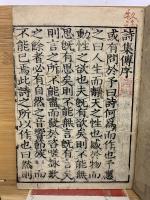 詩集傳序
或有問於予曰詩何爲而作也予應
之曰人生而靜天之性也感於物而
動性之欲也夫既有欲矣則不能無
思既有思矣則不能無言既有言矣
則言之所不能盡而發於咨嗟詠歎
之餘者必有自然之音響節族而
不能已焉此詩之所以作也曰